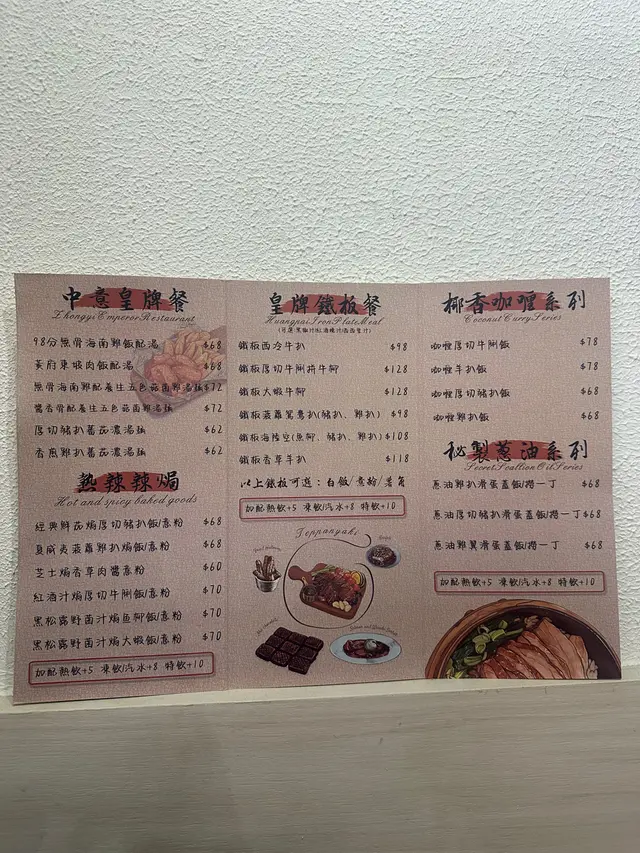 中意皇牌餐
Zhongyi Emperor Restaurant
98分無骨海南雞飯配湯 $68
黃府東坡肉飯配湯 $68
無骨海南雞配養生五色菇菌雞湯麵 $72
醬香骨配養生五色菇菌雞湯麵 $72
厚切豬扒蕃茄濃湯麵 $62
香煎雞扒蕃茄濃湯麵 $62
熱辣辣焗
Hot and spicy baked goods
經典鮮茄焗厚切豬扒飯/意粉 $68
夏威夷菠蘿雞扒焗飯/意粉 $68
芝士焗香草肉醬意粉 $60
紅酒汁焗厚切牛脷飯/意粉 $70
黑松露野菌汁焗魚柳飯/意粉 $70
黑松露野菌汁焗大蝦飯/意粉 $70
加配熱飲+5 凍飲/汽水+8 特飲+10
皇牌鐵板餐
Huangpai Iron Plate Meal
鐵板西冷牛扒 $98
鐵板厚切牛脷拼牛柳 $128
鐵板大蝦牛柳 $128
鐵板菠蘿鴛鴦扒(豬扒、雞扒) $98
鐵板海陸空(魚柳、豬扒、雞扒) $108
鐵板香草羊扒 $118
以上鐵板可選：白飯/意粉/薯角
加配熱飲+5 凍飲/汽水+8 特飲+10
Teppanyaki
椰香咖喱系列
Coconut Curry Series
咖喱厚切牛脷飯 $78
咖喱羊扒飯 $78
咖喱厚切豬扒飯 $68
咖喱雞扒飯 $68
秘製蔥油系列
Secret Scallion Oil Series
蔥油雞扒滑蛋蓋飯/撈一丁 $68
蔥油厚切豬扒滑蛋蓋飯/撈一丁 $68
蔥油雞翼滑蛋蓋飯/撈一丁 $68
加配熱飲+5 凍飲/汽水+8 特飲+10